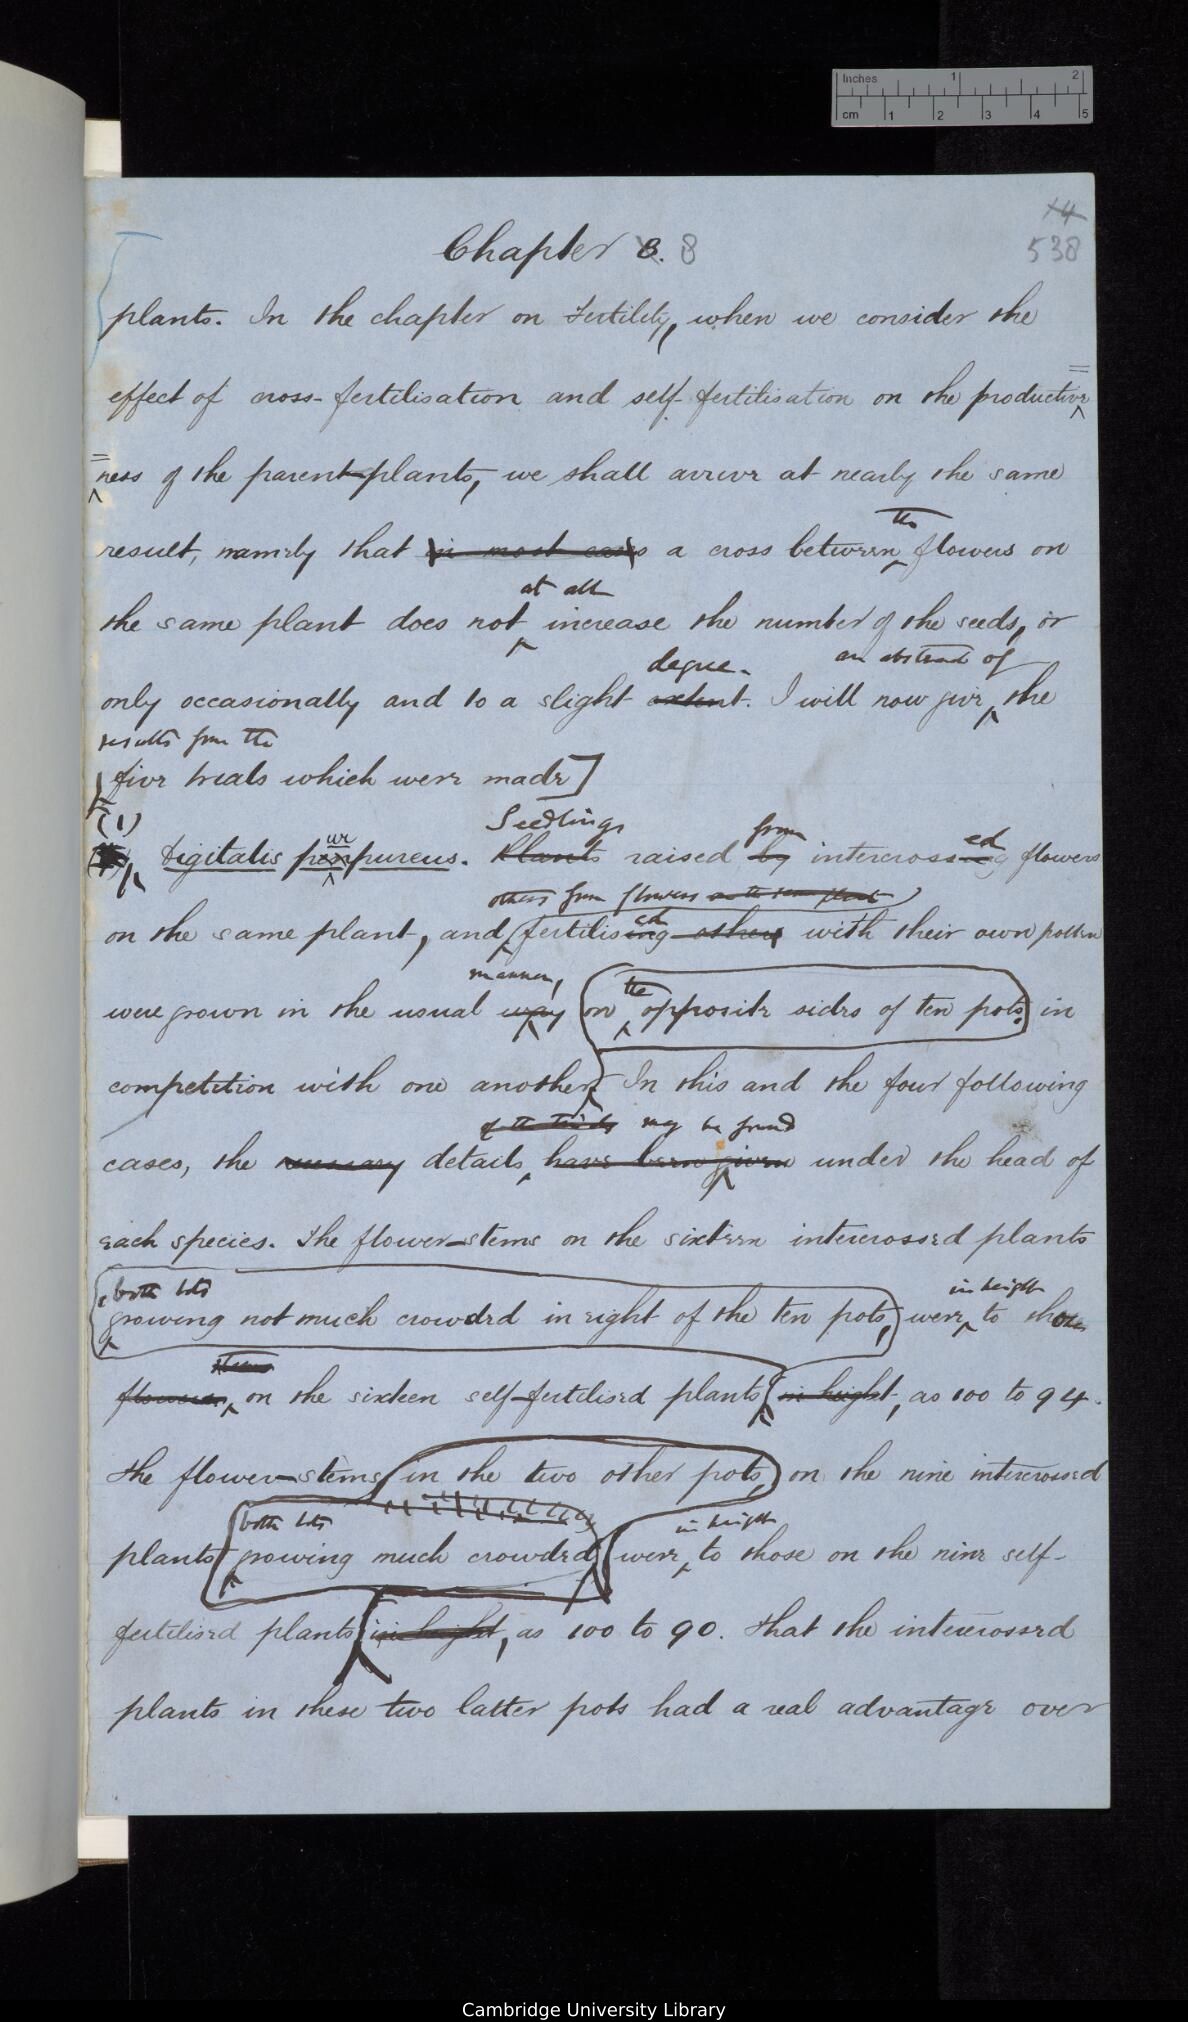 Inches 1 2
cm 1 2 3 4 5
14
Chapter 8. 8
538
plants. In the chapter on Fertility, when we consider the
effect of cross-fertilisation and self-fertilisation on the productive
ness of the parent-plants, we shall arrive at nearly the same
the
result, namely that in most cases a cross between flowers on
at all
the same plant does not increase the number of the seeds, or
degree. an abstract of
only occasionally and to a slight extent. I will now give the
results from the
five trials which were made]
(1) Seedlings from ed
ur
Digitalis purpureus. Plants raised by intercrossing flowers
others from flowers on the same plant
ed
on the same plant, and fertilising others with their own pollen
manner, the
were grown in the usual way on opposite sides of ten pots. in
competition with one another. In this and the four following
of the trials may be found
cases, the necessary details, have been given under the head of
each species. The flower-stems on the sixteen intercrossed plants
both lots in height
growing not much crowded in eight of the ten pots, were to those
stems
flowers, on the sixteen self-fertilised plants in height, as 100 to 94.
The flower-stems in the two other pots, on the nine intercrossed
both lots in height
plants growing much crowded were to those on the nine self-
fertilised plants in height, as 100 to 90. That the intercrossed
plants in these two latter pots had a real advantage over
Cambridge University Library